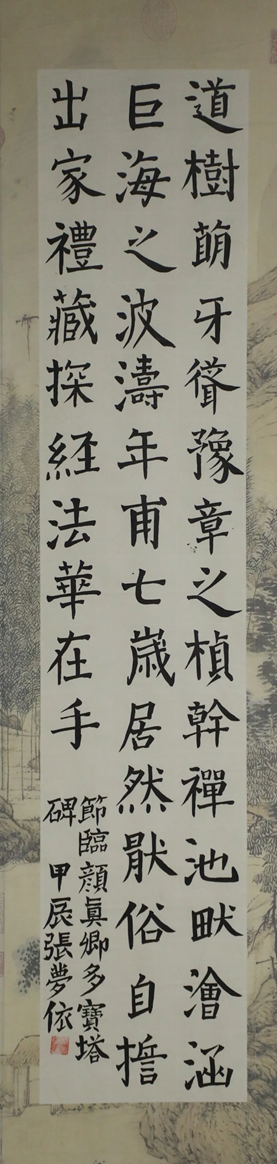 道樹萌牙聳豫章之楨幹禪池畎澮涵
巨海之波濤年甫七歲居然猒俗自誓
出家禮藏探經法華在手
節臨顏真卿多寶塔
碑 甲辰張夢依